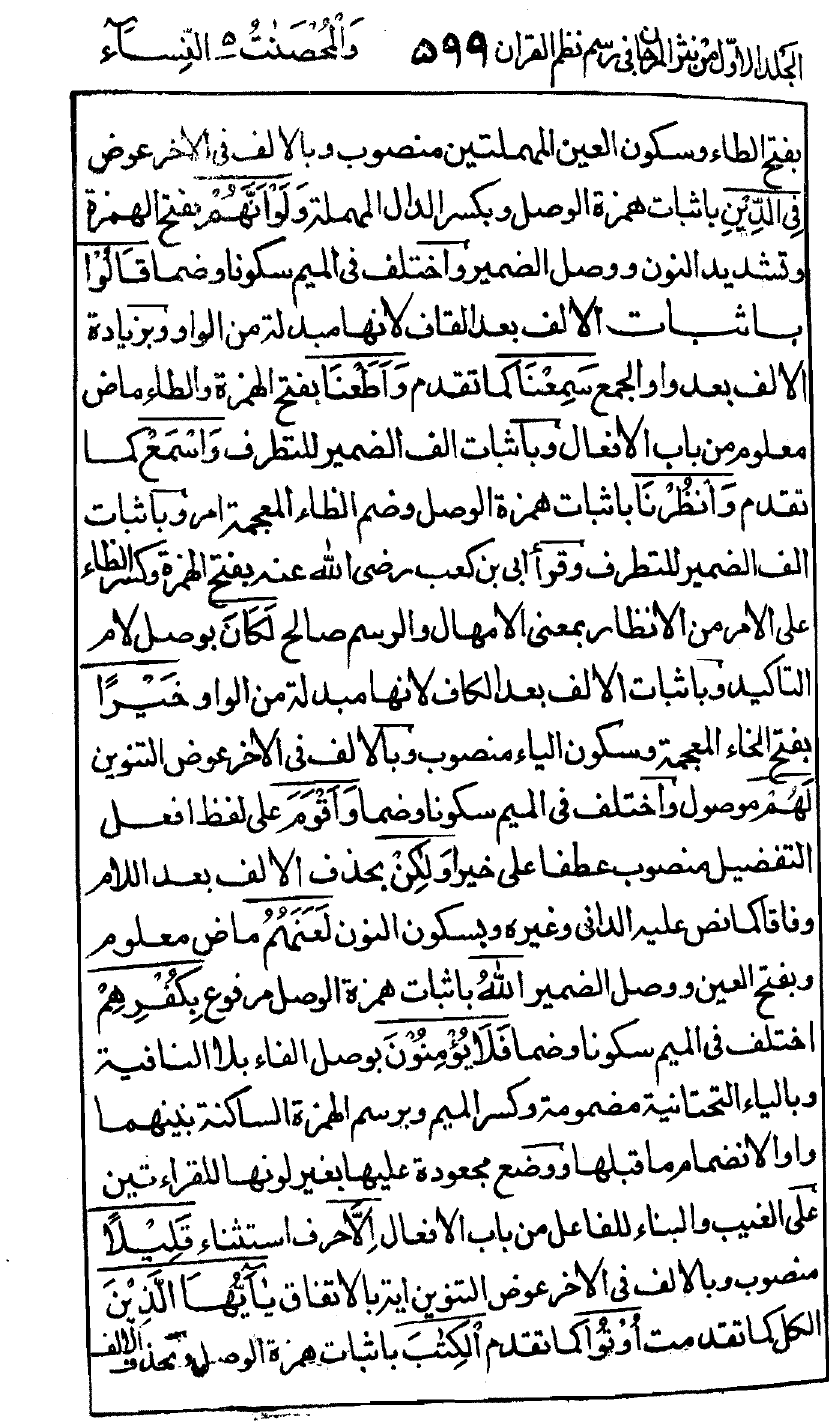 الجلد الاوّل من نثر المرجان فی رسم نظم القران ۵۹۹ وَالْمُحْصَنٰتُ ۵ النِّسَاء
بفتح الطاء وسكون العين المهملتين منصوب وبالالف فى الاخر عوض
فِى الدِّيْنِ باثبات همزة الوصل وبكسر الدال المهملة وَلَوْ اَنَّهُمْ بفتح الهمزة
وتشديد النون ووصل الضمير واختلف فى الميم سكونا وضما قَالُوْا
باثبات الالف بعد القاف لانها مبدلة من الواو وبزيادة
الالف بعد واو الجمع سَمِعْنَا كما تقدم وَاَطَعْنَا بفتح الهمزة والطاء ماض
معلوم من باب الافعال وباثبات الف الضمير للتطرف وَاسْمَعْ كما
تقدم وَانْظُرْنَا باثبات همزة الوصل وضم الظاء المعجمة امر وباثبات
الف الضمير للتطرف وقرأ ابى بن كعب رضى الله عنه بفتح الهمزة وكسر الظاء
على الامر من الانظار بمعنى الامهال والرسم صالح لَكَانَ بوصل لام
التاكيد وباثبات الالف بعد الكاف لانها مبدلة من الواو خَيْرًا
بفتح الخاء المعجمة وسكون الياء منصوب وبالالف فى الاخر عوض التنوين
لَهُمْ موصول واختلف فى الميم سكونا وضما وَاَقْوَمَ على لفظ افعل
التفضيل منصوب عطفا على خيرا وَلٰكِنْ بحذف الالف بعد اللام
وفاقا كما نص عليه الدانى وغيره وبسكون النون لَعَنَهُمُ ماض معلوم
وبفتح العين ووصل الضمير اللهُ باثبات همزة الوصل مرفوع بِكُفْرِهِمْ
اختلف فى الميم سكونا وضما فَلَا يُؤْمِنُوْنَ بوصل الفاء بلا النافية
وبالياء التحتانية مضمومة وكسر الميم وبرسم الهمزة الساكنة بينهما
واوا لانضمام ما قبلها ووضع مجعودة عليها بغير لونها للقراءتين
على الغيب والبناء للفاعل من باب الافعال اِلَّا حرف استثناء قَلِيْلًا
منصوب وبالالف فى الاخر عوض التنوين اية بالاتفاق يٰاَيُّهَا الَّذِيْنَ
الكل كما تقدمت اُوْتُوا كما تقدم الْكِتٰبَ باثبات همزة الوصل وبحذف الالف